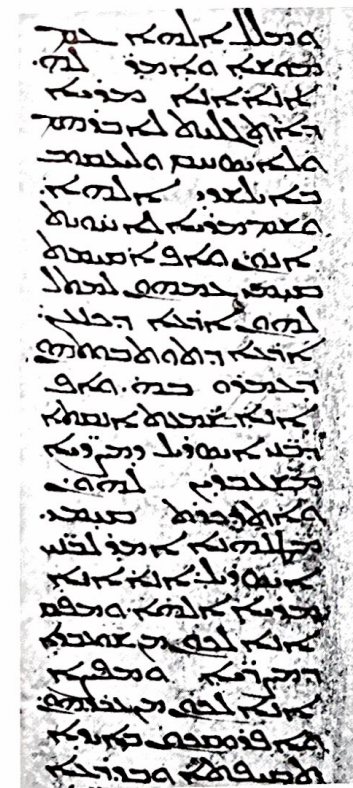 ܘܡܠܠ ܐܠܗܐ ܥܡ
ܡܘܫܐ ܘܐܡܪ ܠܗ.
ܐܢܐ ܐܢܐ ܡܪܝܐ
ܕܐܬܓܠܝܬ ܠܐܒܪܗܡ
ܘܠܐܝܣܚܩ ܘܠܝܥܩܘܒ
ܒܐܝܠܫܕܝ ܐܠܗܐ.
ܘܫܡ ܡܪܝܐ ܠܐ ܚܘܝܬ
ܐܢܘܢ ܘܐܦ ܐܩܝܡܬ
ܩܝܡܝ ܥܡܗܘܢ ܠܡܬܠ
ܠܗܘܢ ܐܪܥܐ ܕܟܢܥܢ.
ܐܪܥܐ ܕܬܘܬܒܘܬܗܘܢ
ܕܥܡܪܘ ܒܗ. ܘܐܦ
ܐܢܐ ܫܡܥܬ ܐܢܩܬܐ
ܕܒܢ̈ܝ ܐܝܣܪܝܠ ܕܡܨܪ̈ܝܐ
ܡܫܥܒܕܝܢ ܠܗܘܢ
ܘܐܬܕܟܪܬ ܩܝܡܝ.
ܡܛܠܗܢܐ ܐܡܪ ܠܒܢ̈ܝ
ܐܝܣܪܝܠ ܐܢܐ ܐܢܐ
ܡܪܝܐ ܐܠܗܐ. ܘܡܦܩ
ܐܢܐ ܠܟܘܢ ܡܢ ܫܘܥܒܕܐ
ܕܡܨܪ̈ܝܐ ܘܡܦܨܐ
ܐܢܐ ܠܟܘܢ ܡܢ
ܘܐܦܪܘܩܟܘܢ ܒܐܝܕܐ
ܬܩܝܦܬܐ ܘܒܕܪܥܐ